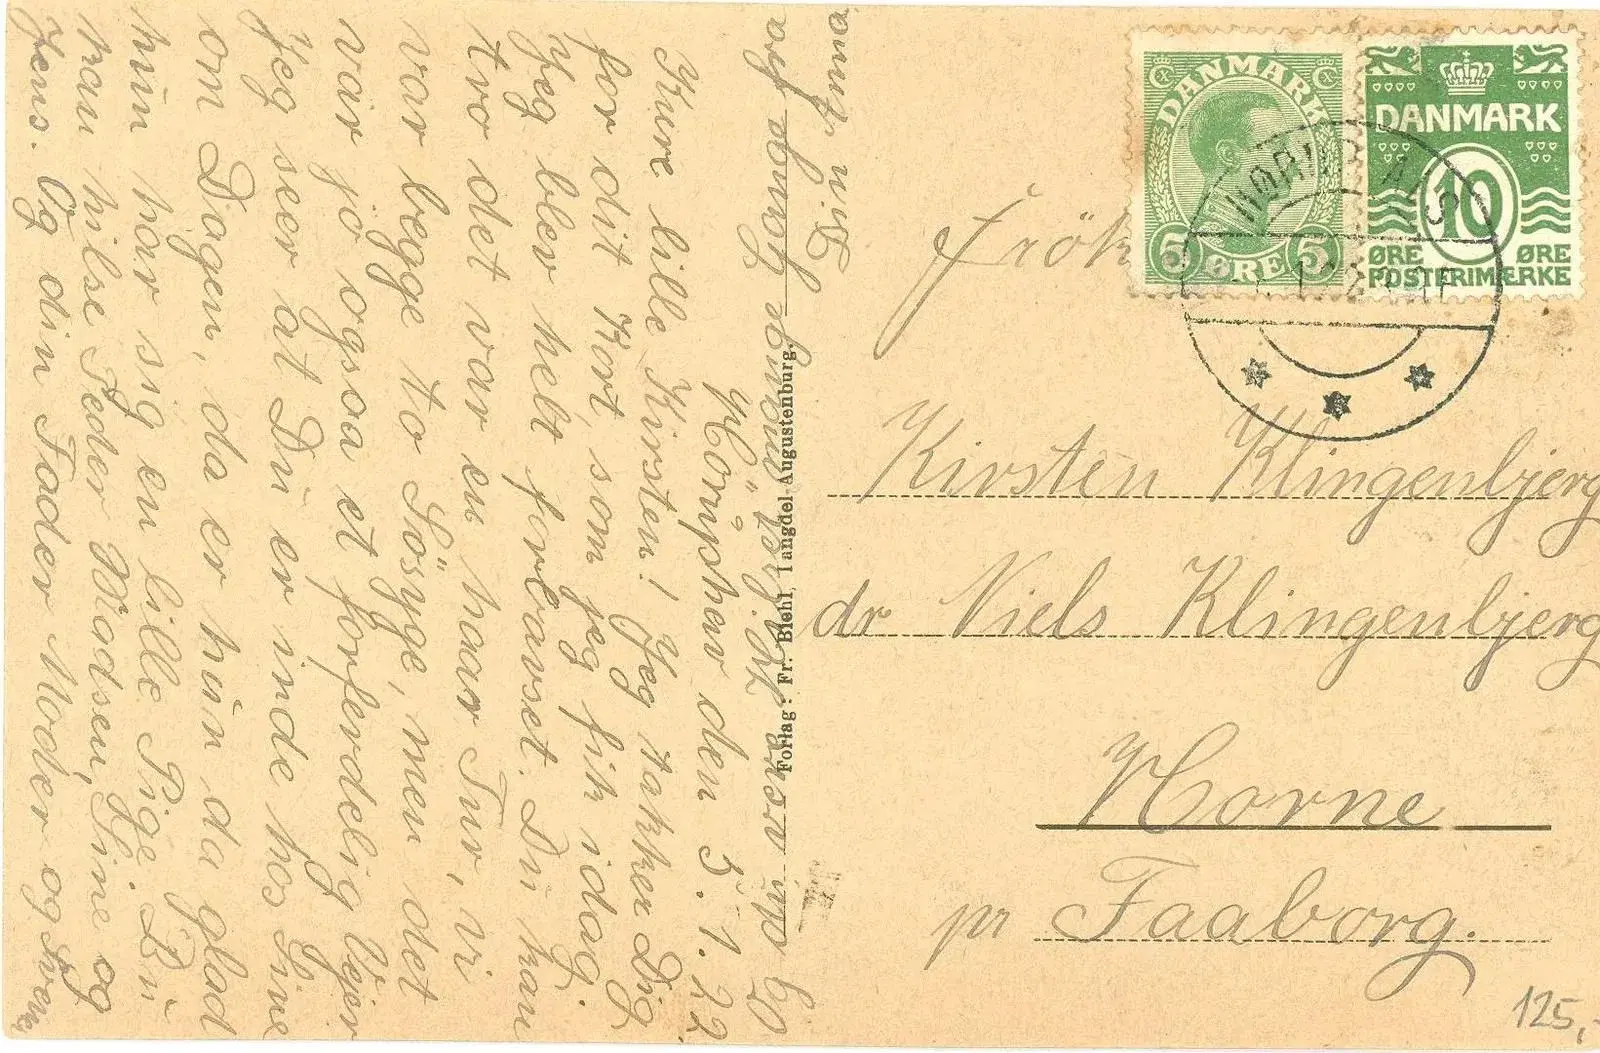 Hörüphav den 5. 1. 22
Kære lille Kirsten! Jeg takker Dig
for dit Kort, som jeg fik idag.
Jeg blev helt forbavset. Du kan
tro det var en haar Tur, vi
var begge to Sösyge, men det
var jo ogsaa et forferdelig Vejr
Jeg seer at Du er inde hos Sine
om Dagen, da er hun da glad
hun har sig en lille Pige. Du
kan hilse Peder Madsen, Sine og
Jens. Og din Fader Moder og Svend
og saa
mange
fra
Din
Anna
Forlag: Fr. Biehl, Tangdel-Augustenburg.
DANMARK
5 ØRE 5
DANMARK
10
ØRE ØRE
POSTFRIMÆRKE
NØRDB ALS
Frök
Kirsten Klingenbjerg
dr Niels Klingenbjerg
Horne
pr Faaborg.
125,-